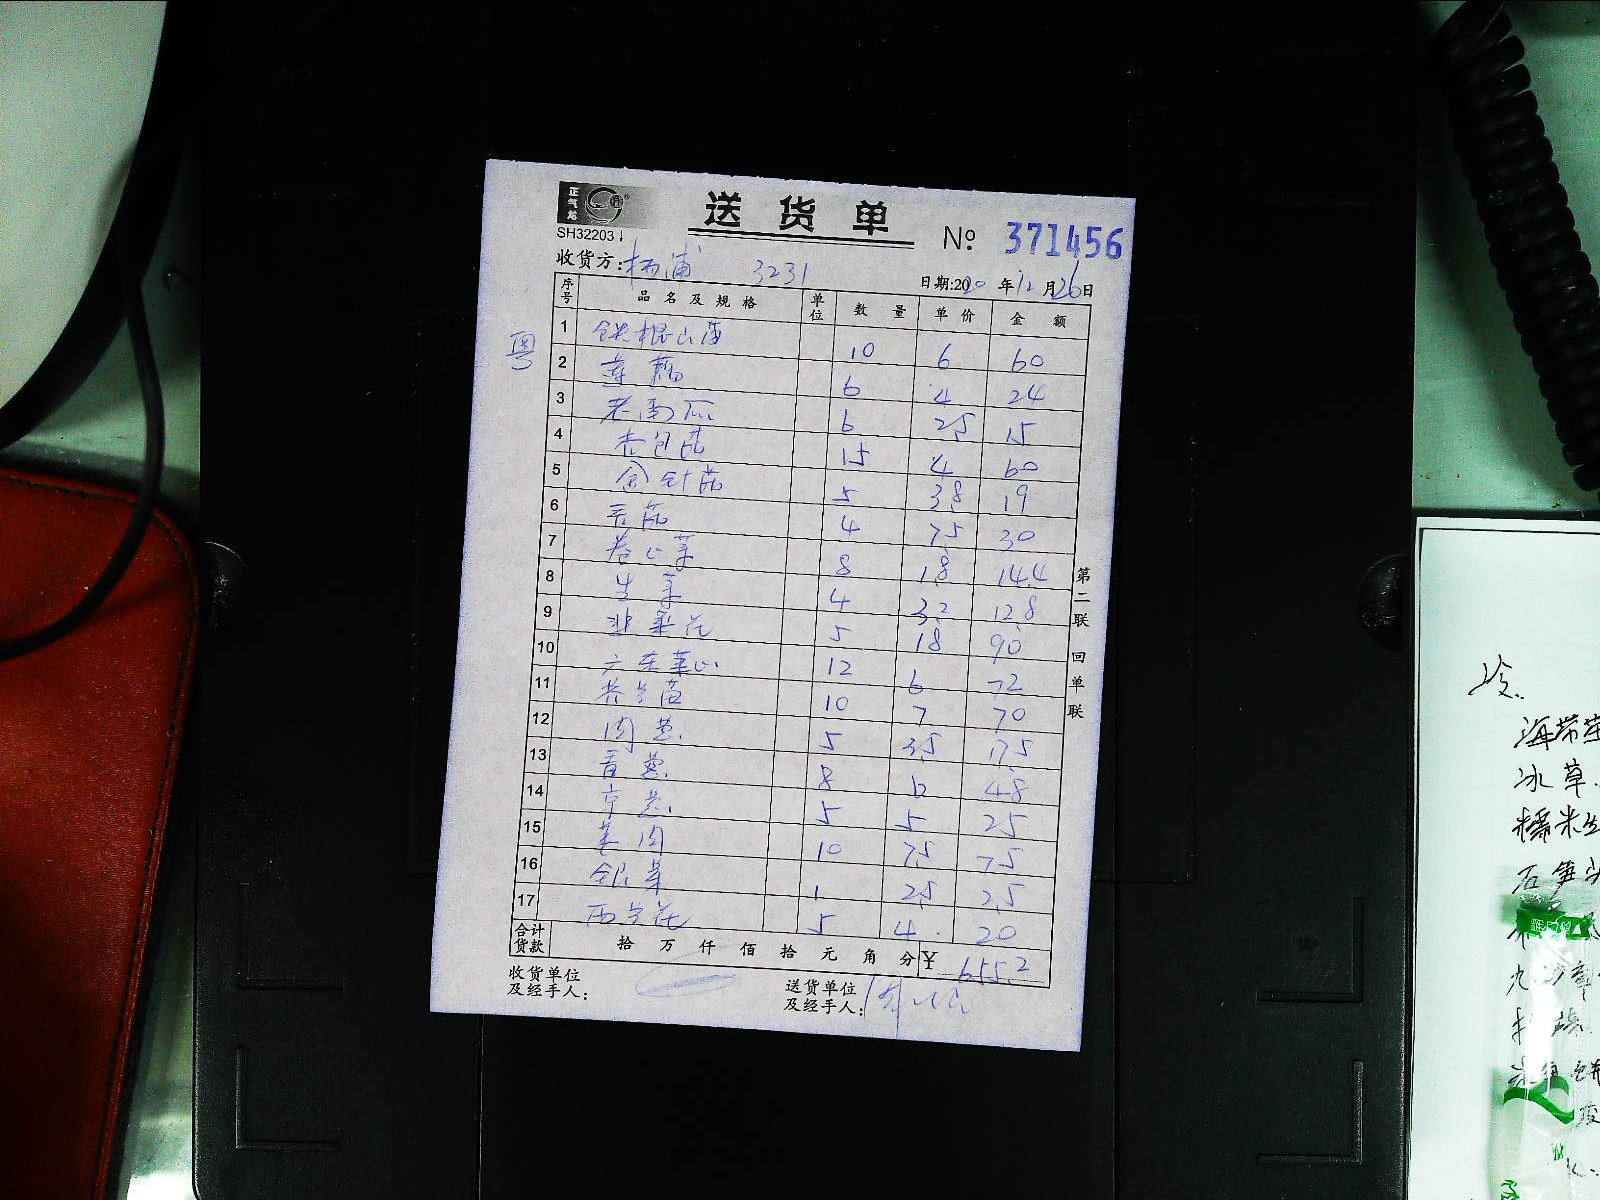 正气龙
送货单
SH32203
№ 371456
收货方: 杨浦 3231
日期:2020年12月26日
序号 品名及规格 单位 数量 单价 金额
粤
1 铁棍山药 10 6 60
2 莲藕 6 4 24
3 老南瓜 6 2.5 15
4 杏包菇 15 4 60
5 金针菇 5 3.8 19
6 香菇 4 7.5 30
7 卷心菜 8 1.8 14.4
8 生菜 4 3.2 12.8
9 韭菜花 5 18 90
10 广东菜心 12 6 72
11 芥兰苗 10 7 70
12 肉葱 5 3.5 17.5
13 香葱 8 6 48
14 京葱 5 5 25
15 姜肉 10 7.5 75
16 银芽 1 2.5 2.5
17 西兰花 5 4 20
合计货款 拾万仟佰拾元角分 ¥ 655.2
收货单位及经手人:
送货单位及经手人:
第二联 回单联
冷.
海带
冰草.
糯米
石笋